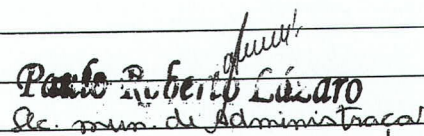 Paulo Roberto Lázaro
Sec. mun. de Administraçao